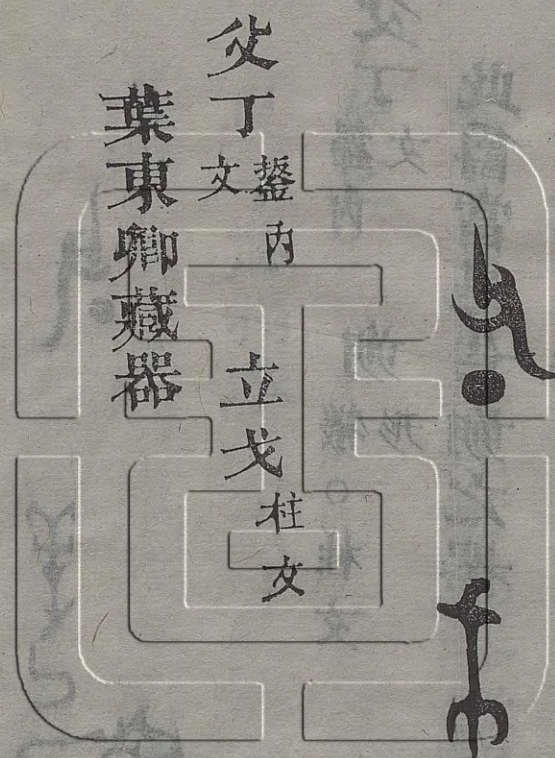 父丁鋬内文 立戈柱文
葉東卿藏器